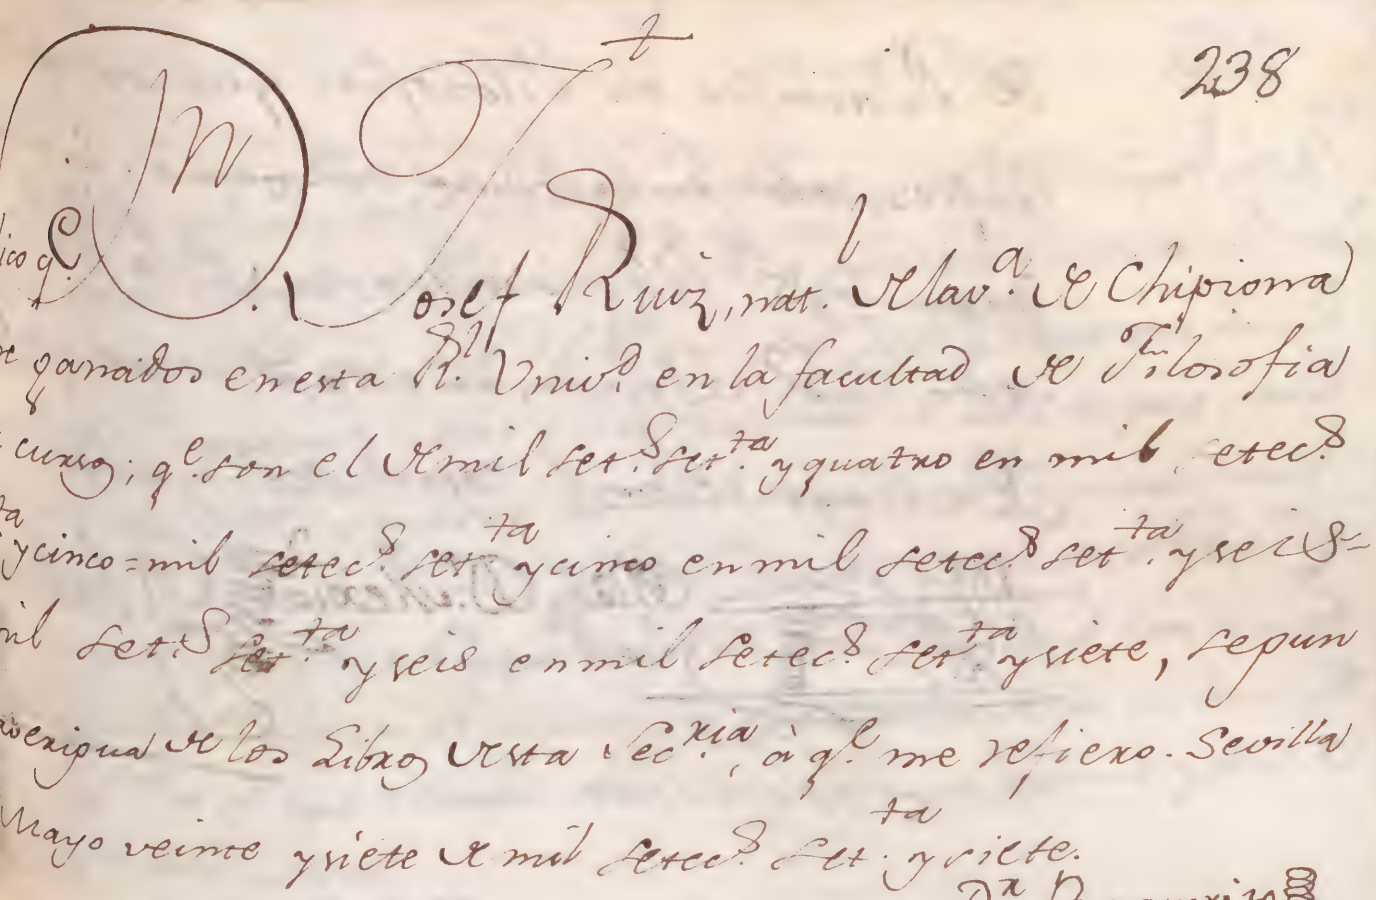 238
lico q.e D.n Josef Ruiz, nat.l de la v.a de Chipiona
ganados en esta R.l Univ.d en la facultad de Filosofia
cursos; q.e son el de mil set.s set.ta y quatro en mil setec.s
ta y cinco = mil setec.s set.ta y cinco en mil setec.s set.ta y seis =
mil set.s set.ta y seis en mil setec.s set.ta y siete, segun
averigua de los Libros desta Sec.ria, à q.e me refiero. Sevilla
Mayo veinte y siete de mil setec.s set.ta y siete.